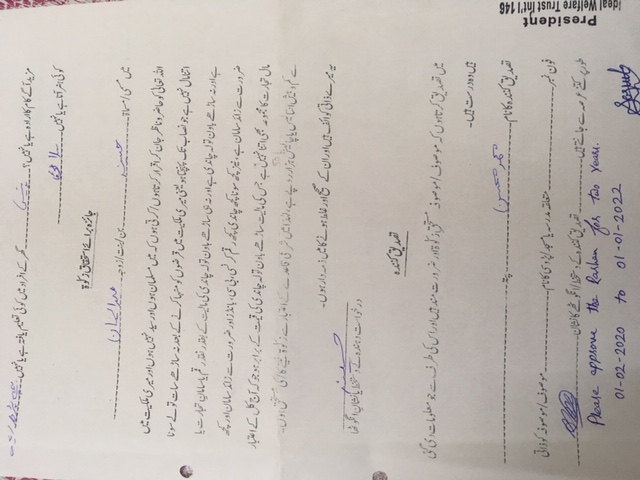 مزید آگے کام کا ارادہ ہے یا نہیں؟ نہیں گھر کے افراد میں کوئی تعلیم یافتہ ہے یا نہیں۔
کوئی ہنر آتا ہے یا نہیں
جائزہ برائے استحقاق زکوٰۃ
میں مسمی/مسماۃ حسینہ بن/بنت/زوجہ
اللہ تعالیٰ کو حاضر و ناظر جان کر اقرار کرتا ہوں/کرتی ہوں کہ میں مسلمان ہوں اور سید نہیں ہوں اور میری ملکیت میں
اتنا مال نہیں ہے جو نصاب تک پہنچتا ہو یعنی میری ملکیت میں قرضوں کو منہا کرنے کے بعد نہ ساڑھے سات تولے سونا
ہے اور نہ ساڑھے باون تولہ چاندی ہے اور نہ ہی ساڑھے باون تولہ چاندی کی مالیت کے بقدر نقد رقم یا سامانِ تجارت یا
ضرورت سے زائد سامان ہے، نیز کچھ سونا کچھ چاندی کچھ رقم کرنسی، بی سی، بانڈز اور ضرورت سے زائد سامان اور کچھ
مال تجارت کا مجموعہ بھی اتنا نہیں ہے جس کی مالیت ساڑھے باون تولہ چاندی کی قیمت کے برابر ہو جو کہ آج کل کے اعتبار
سے کم و بیش انتالیس یا چالیس ہزار روپے ہے، لہٰذا میں شرعی قاعدے کے اعتبار سے زکوٰۃ لینے کا/کی مستحق ہوں۔
یہ میرے ذاتی کوائف ہیں اور ان کے صحیح اور غلط ہونے کا میں ذمہ دار ہوں۔
حسینہ
درخواست دہندہ کے دستخط یا نشان انگوٹھا
تصدیق کنندہ
میں تصدیق کرتا ہوں کہ موصوف/موصوفہ مستحق زکوٰۃ اور ضرورت مند ہیں اور اس کی طرف سے جو معلومات دی گئی
ہیں وہ درست ہیں۔
تصدیق کنندہ کا نام محمد محسن پتہ
فون نمبر متعلقہ مدرسہ یا مسجد/پڑوسی کا نام موصوف/موصوفہ کو ذاتی
طور پر کتنے عرصہ سے جانتے ہیں تصدیق کنندہ کے دستخط/انگوٹھے کا نشان
Please approve the Rashen for two years.
01-02-2020 to 01-01-2022
President
Ideal Welfare Trust Int'l 146